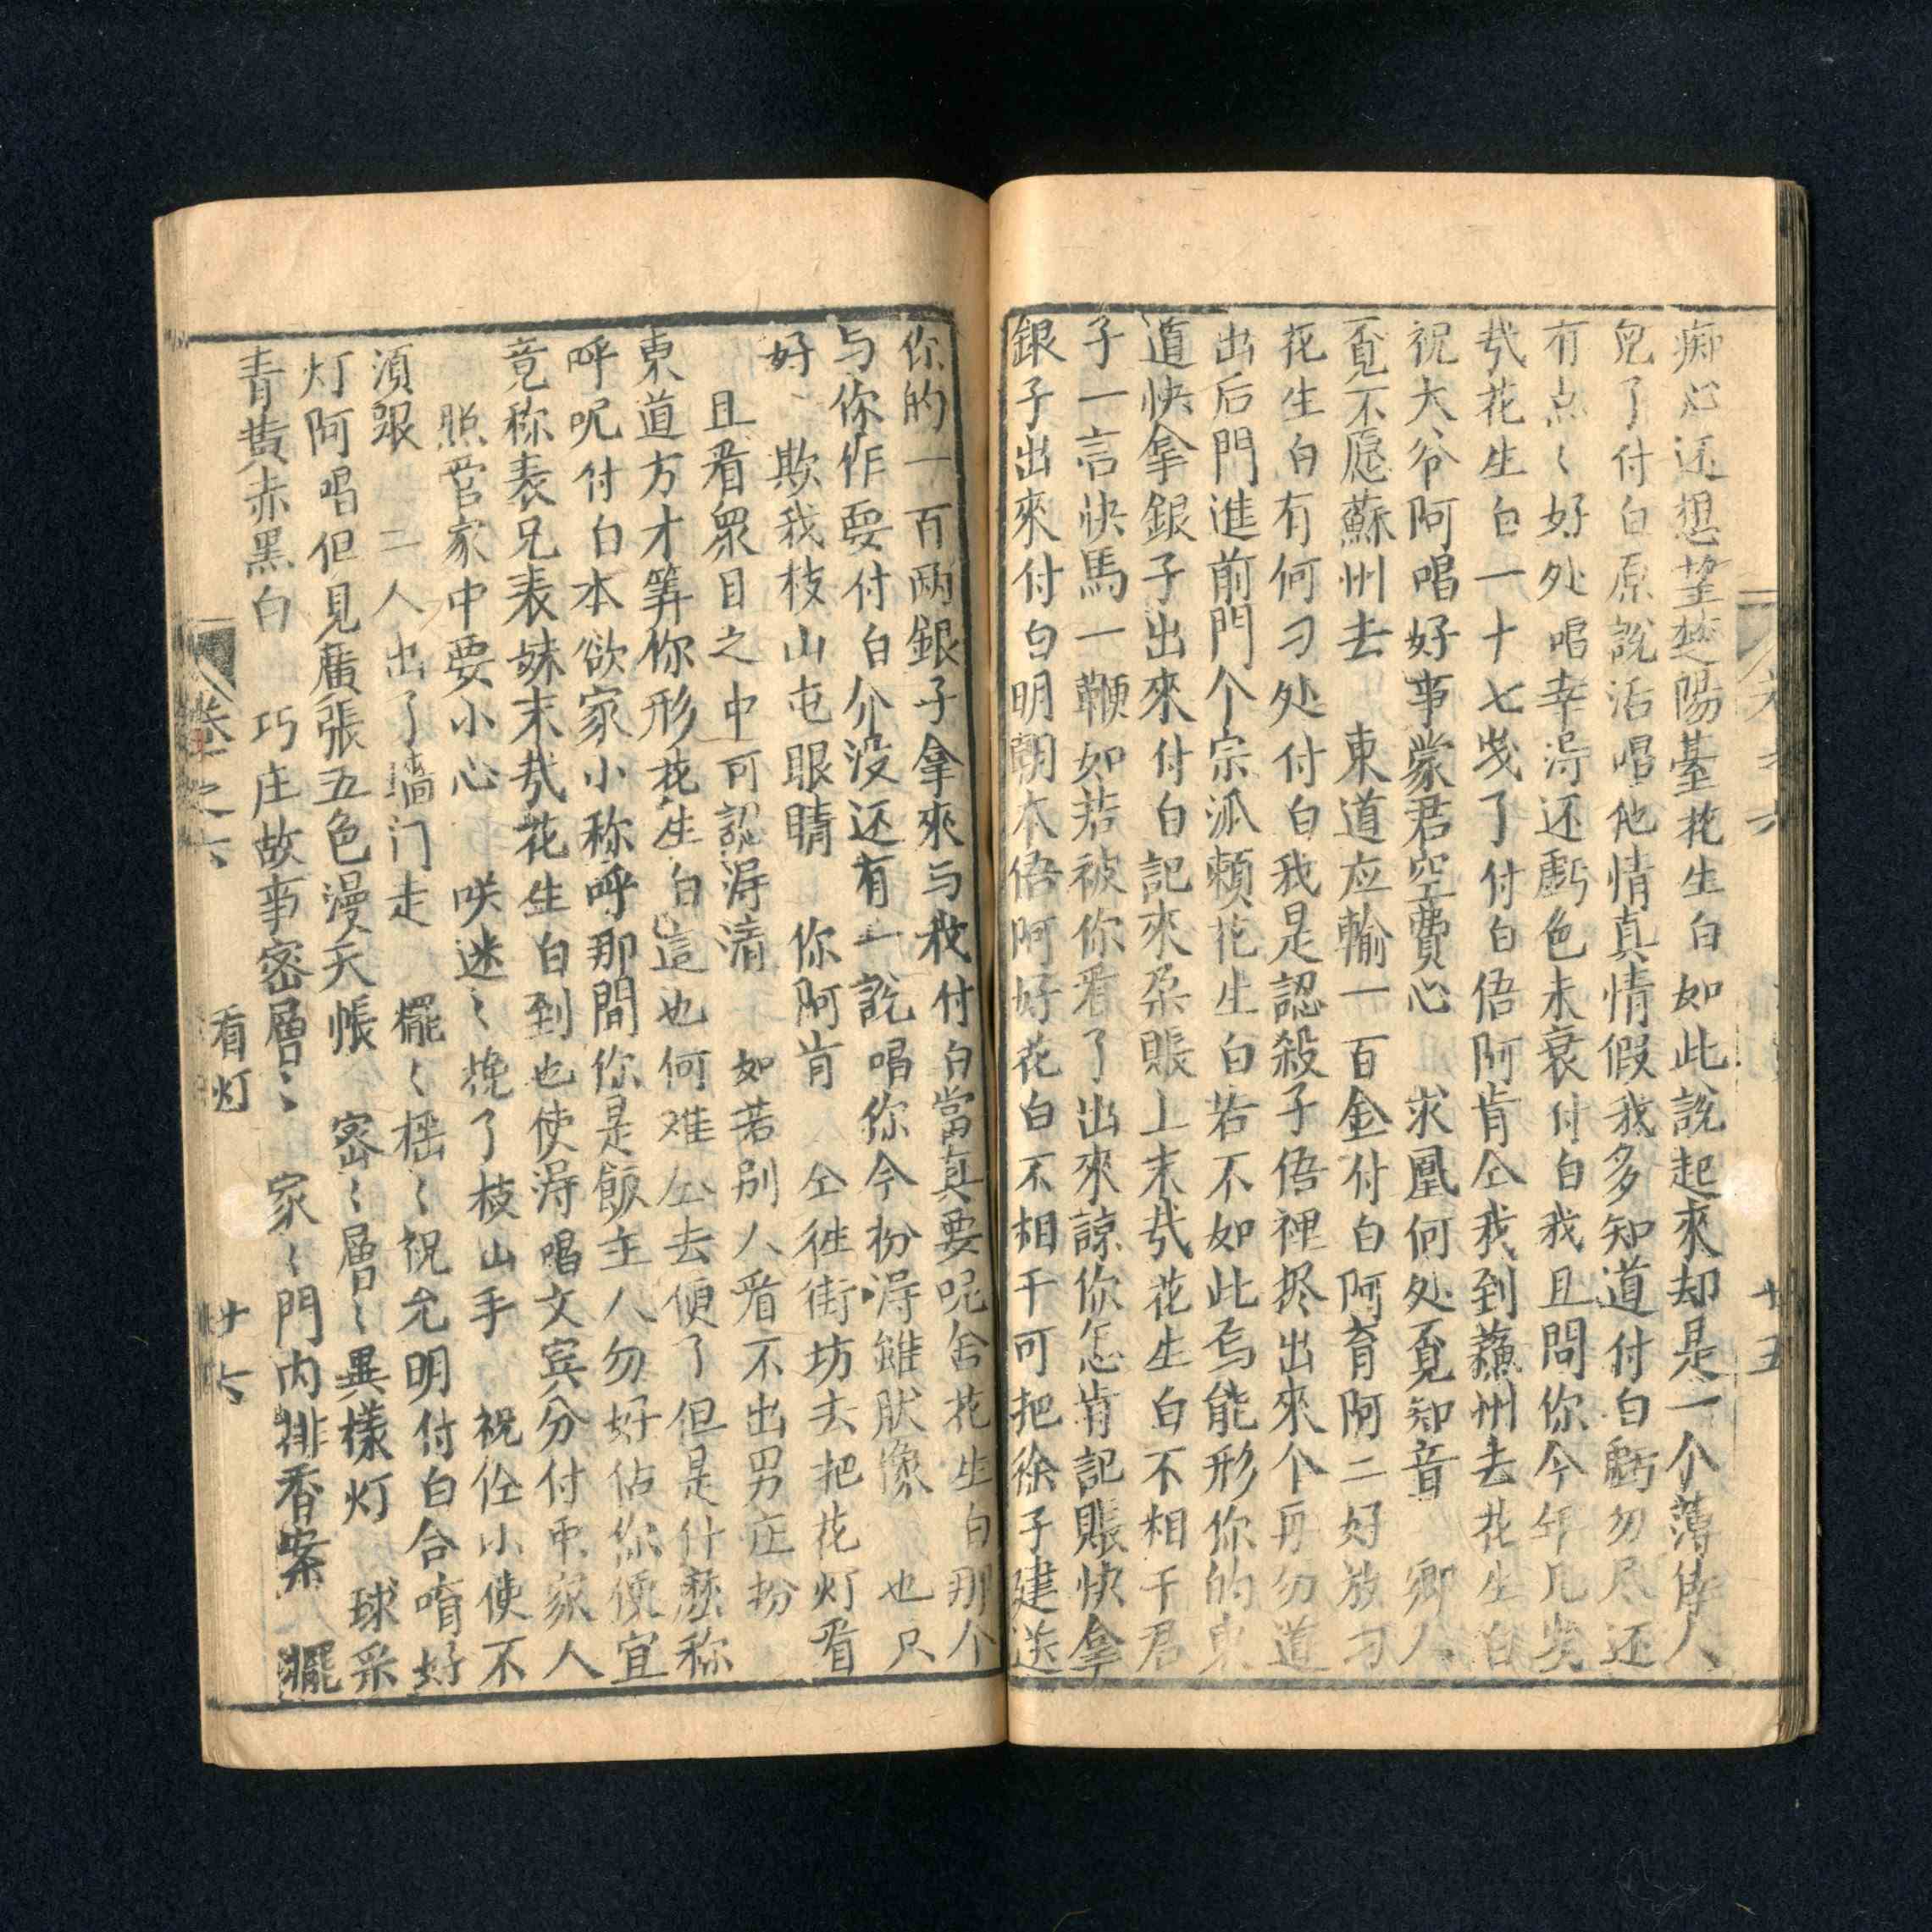 痴心还想望楚陽臺花生白如此說起來却是一个薄倖人
兒了付白原說活唱他情真情假我多知道付白虧勿尽还
有点〻好处唱幸淂还虧色未衰付白我且問你今年几岁
㢤花生白一十七岁了付白俉阿肯仝我到蘓州去花生白
祝大爷阿唱好事蒙君空費心　求凰何处覓知音　卿人
覓不愿蘇州去　東道应輸一百金付白阿育阿二好放刁
花生白有何刁处付白我是認殺子俉裡捱出來个再勿道
出后門進前門个宗派賴花生白若不如此烏能形你的東
道快拿銀子出來付白記來朶賬上末㢤花生白不相干君
子一言快馬一鞭如若被你看了出來諒你怎肯記賬快拿
銀子出來付白明朝本俉阿好花白不相干可把徐子建送
你的一百兩銀子拿來与我付白當真要呢舍花生白那个
与你作耍付白介没还有一說唱你今扮淂雖肰像　也只
好丶欺我枝山屯眼睛　你阿肯　仝徃街坊去把花灯看
且看眾目之中可認淂清　如若別人看不出男庄扮
東道方才筭你形花生白這也何难仝去便了但是什麽称
呼呢付白本欲家小称呼那間你是飯主人勿好佔你便宜
竟称表兄表妹末㢤花生白到也使淂唱文宾分付中家人
照管家中要小心　咲迷〻挽了枝山手　祝仕小使不
湏跟　二人出了墻门走　擺〻摇〻祝允明付白合唷好
灯阿唱但見廣張五色漫天帳　密〻層〻異樣灯　球采
青黃赤黑白　巧庄故事密層〻　家〻門內排香案　擺
卷之六　看灯　廿六